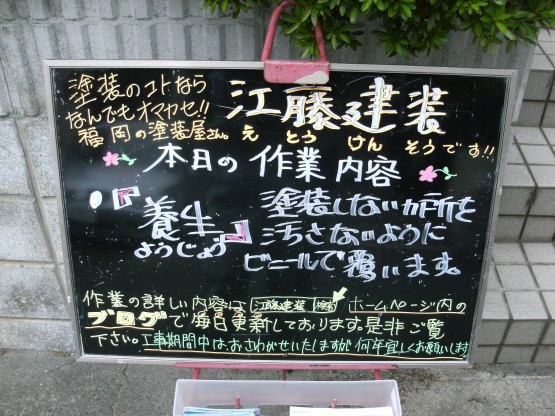 塗装のコトなら
なんでもオマカセ!!
福岡の塗装屋さん。
江藤建装
えとうけんそうです!!
本日の作業内容
『養生』
ようじょう
塗装しないカ所を
汚さないように
ビニールで覆います。
作業の詳しい内容は 江藤建装 検索 ホームページ内の
ブログで毎日更新しております。是非ご覧
下さい。工事期間中は、おさわがせいたしますが何卒宜しくお願いします